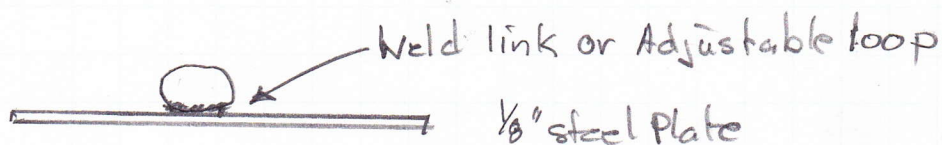 Weld link or Adjustable loop
1/8" steel Plate